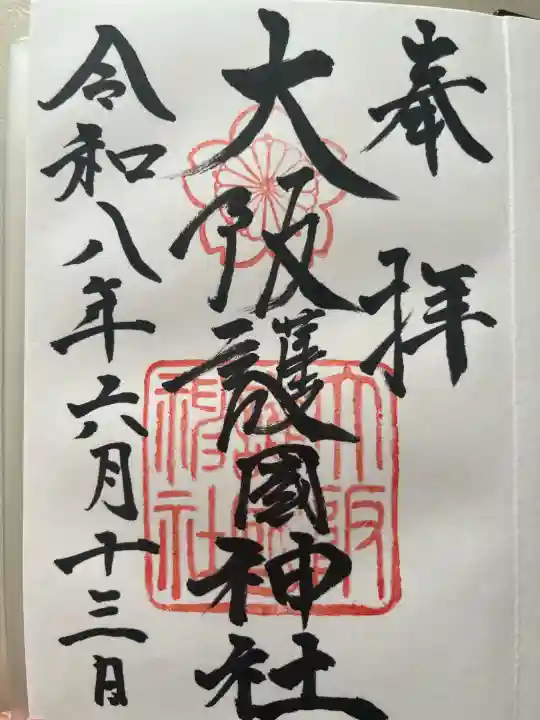 奉拝
大阪護國神社
大阪護國神社
令和八年六月十三日